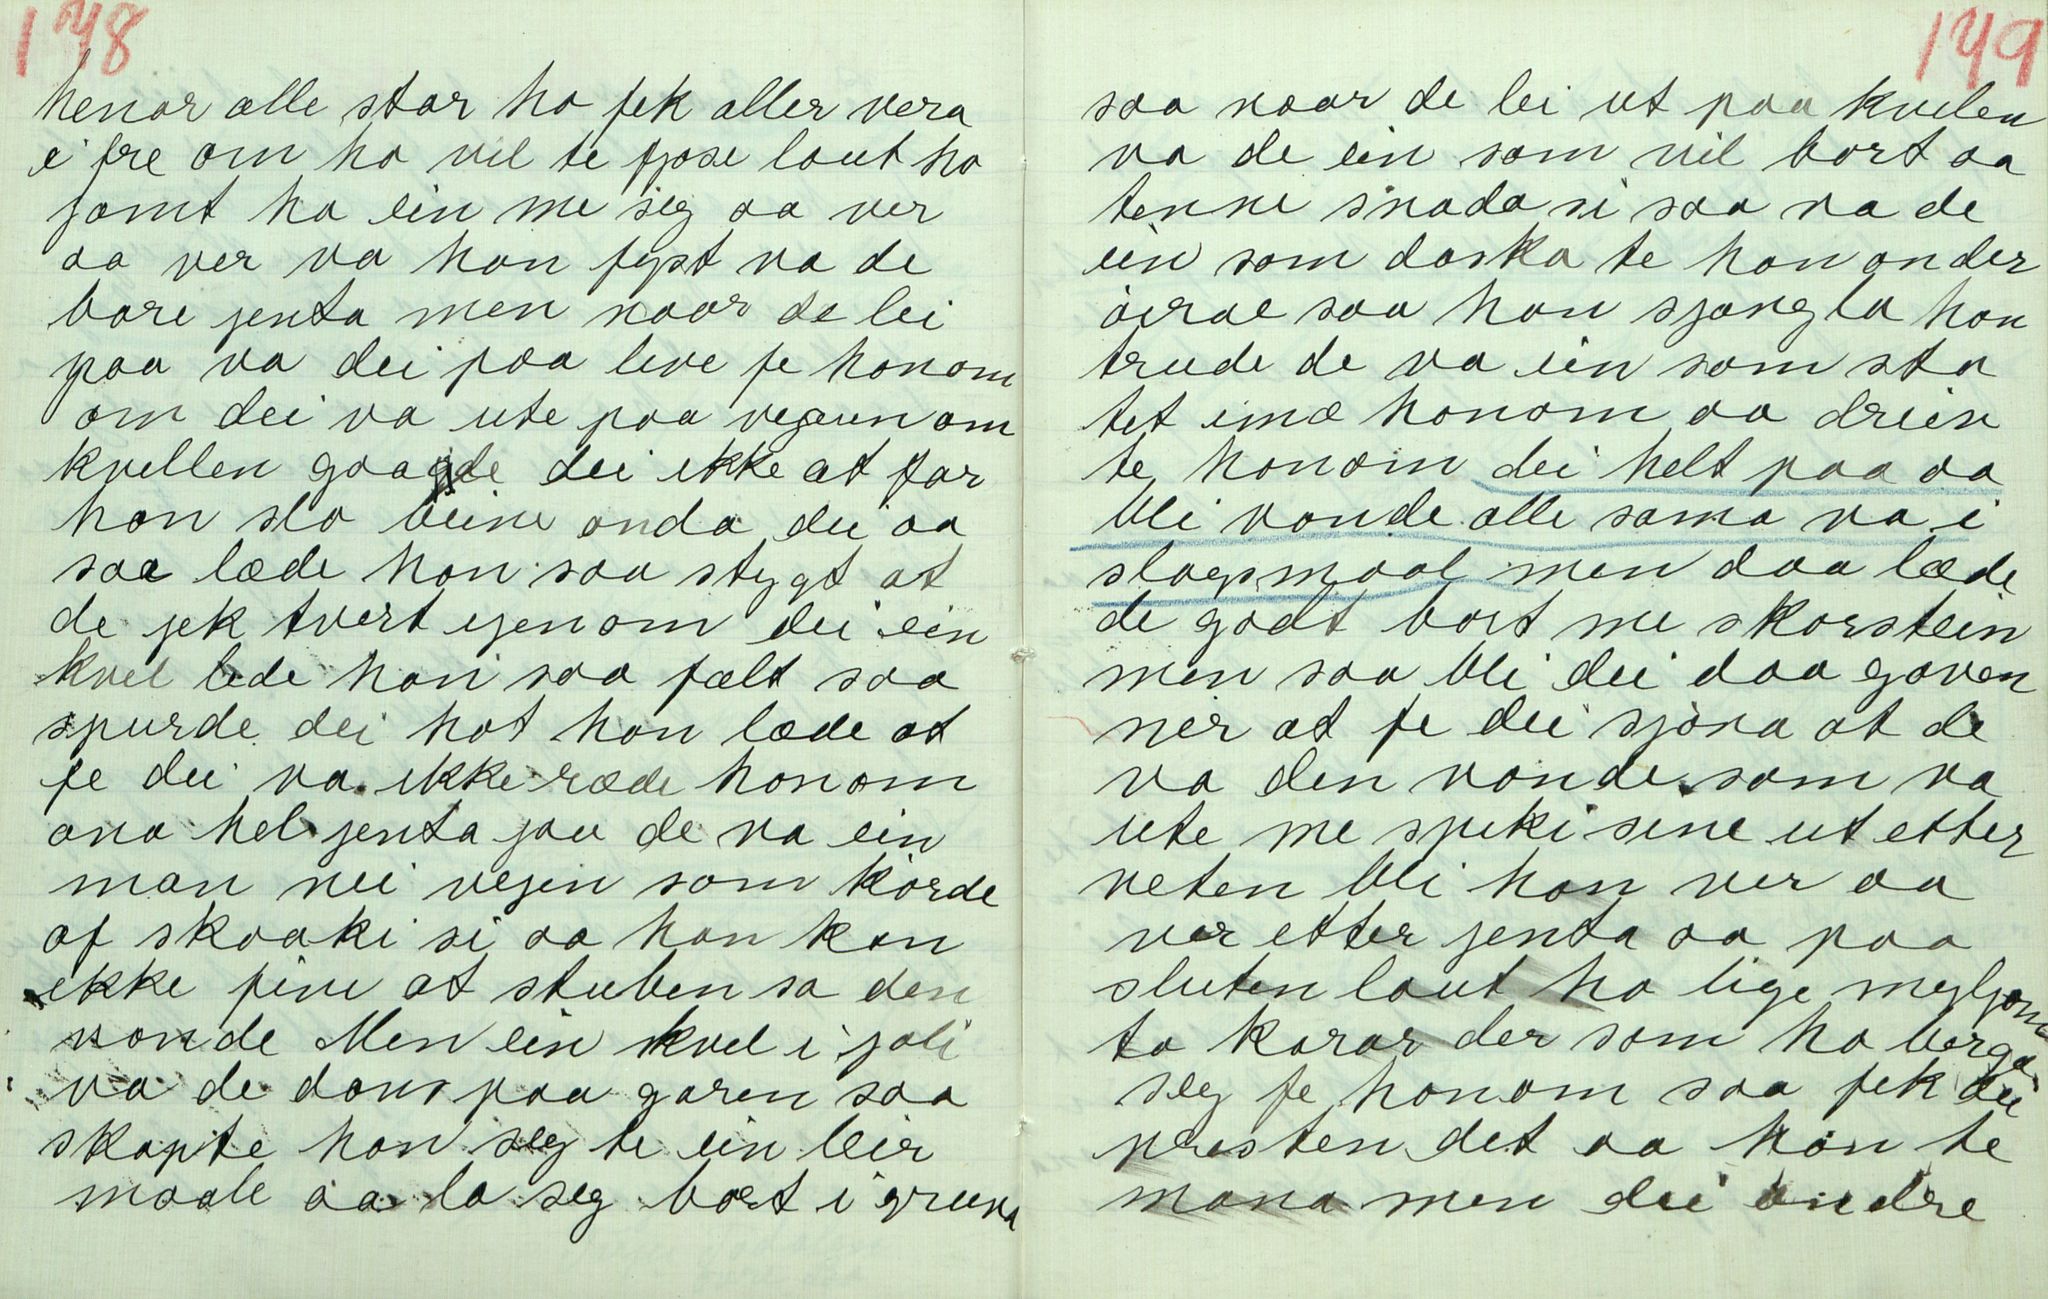 148
henar alle star ho fek aller vera
i fre om ho vil te fjøse laut ho
jamt ha ein me seg aa ver
aa ver va han fyst va de
bare jenta men naar de lei
paa va dei paa live fe honom
om dei va ute paa vegen om
kvellen gaadde dei ikke at far
han slo beine onda dei aa
saa læde han saa stygt at
de jek tvert ijenom dei ein
kvel lede han saa fælt saa
spurde dei hot han læde at
fe dei va ikke ræde honom
ana hel jenta jau de va ein
man nei vejen som körde
af skaaki si aa han kan
ikke fine at stuben sa den
vonde Men ein kvel i joli
va de dans paa garen saa
skapte han seg te ein leir
maale aa la seg bort i gruva
149
saa naar de lei ut paa kvelen
va de ein som vil bort aa
tenne snada si saa va de
ein som daska te han onder
öirae saa han sjangla han
trude de va ein som sto
tet imo honom aa dreiv
te honom dei helt paa aa
bli vonde alle sama va i
slagsmaal men daa læde
de godt bort me skorstein
men saa bli dei daa gaven
ner at fe dei sjöna at de
va den vonde som va
ute me spiki sine ut etter
veten bli han ver aa
ver etter jenta aa paa
sluten laut ho lige mysljom
to karar der som ho berga
seg fe honom saa fek dei
presten det aa han te
mana men dei andre